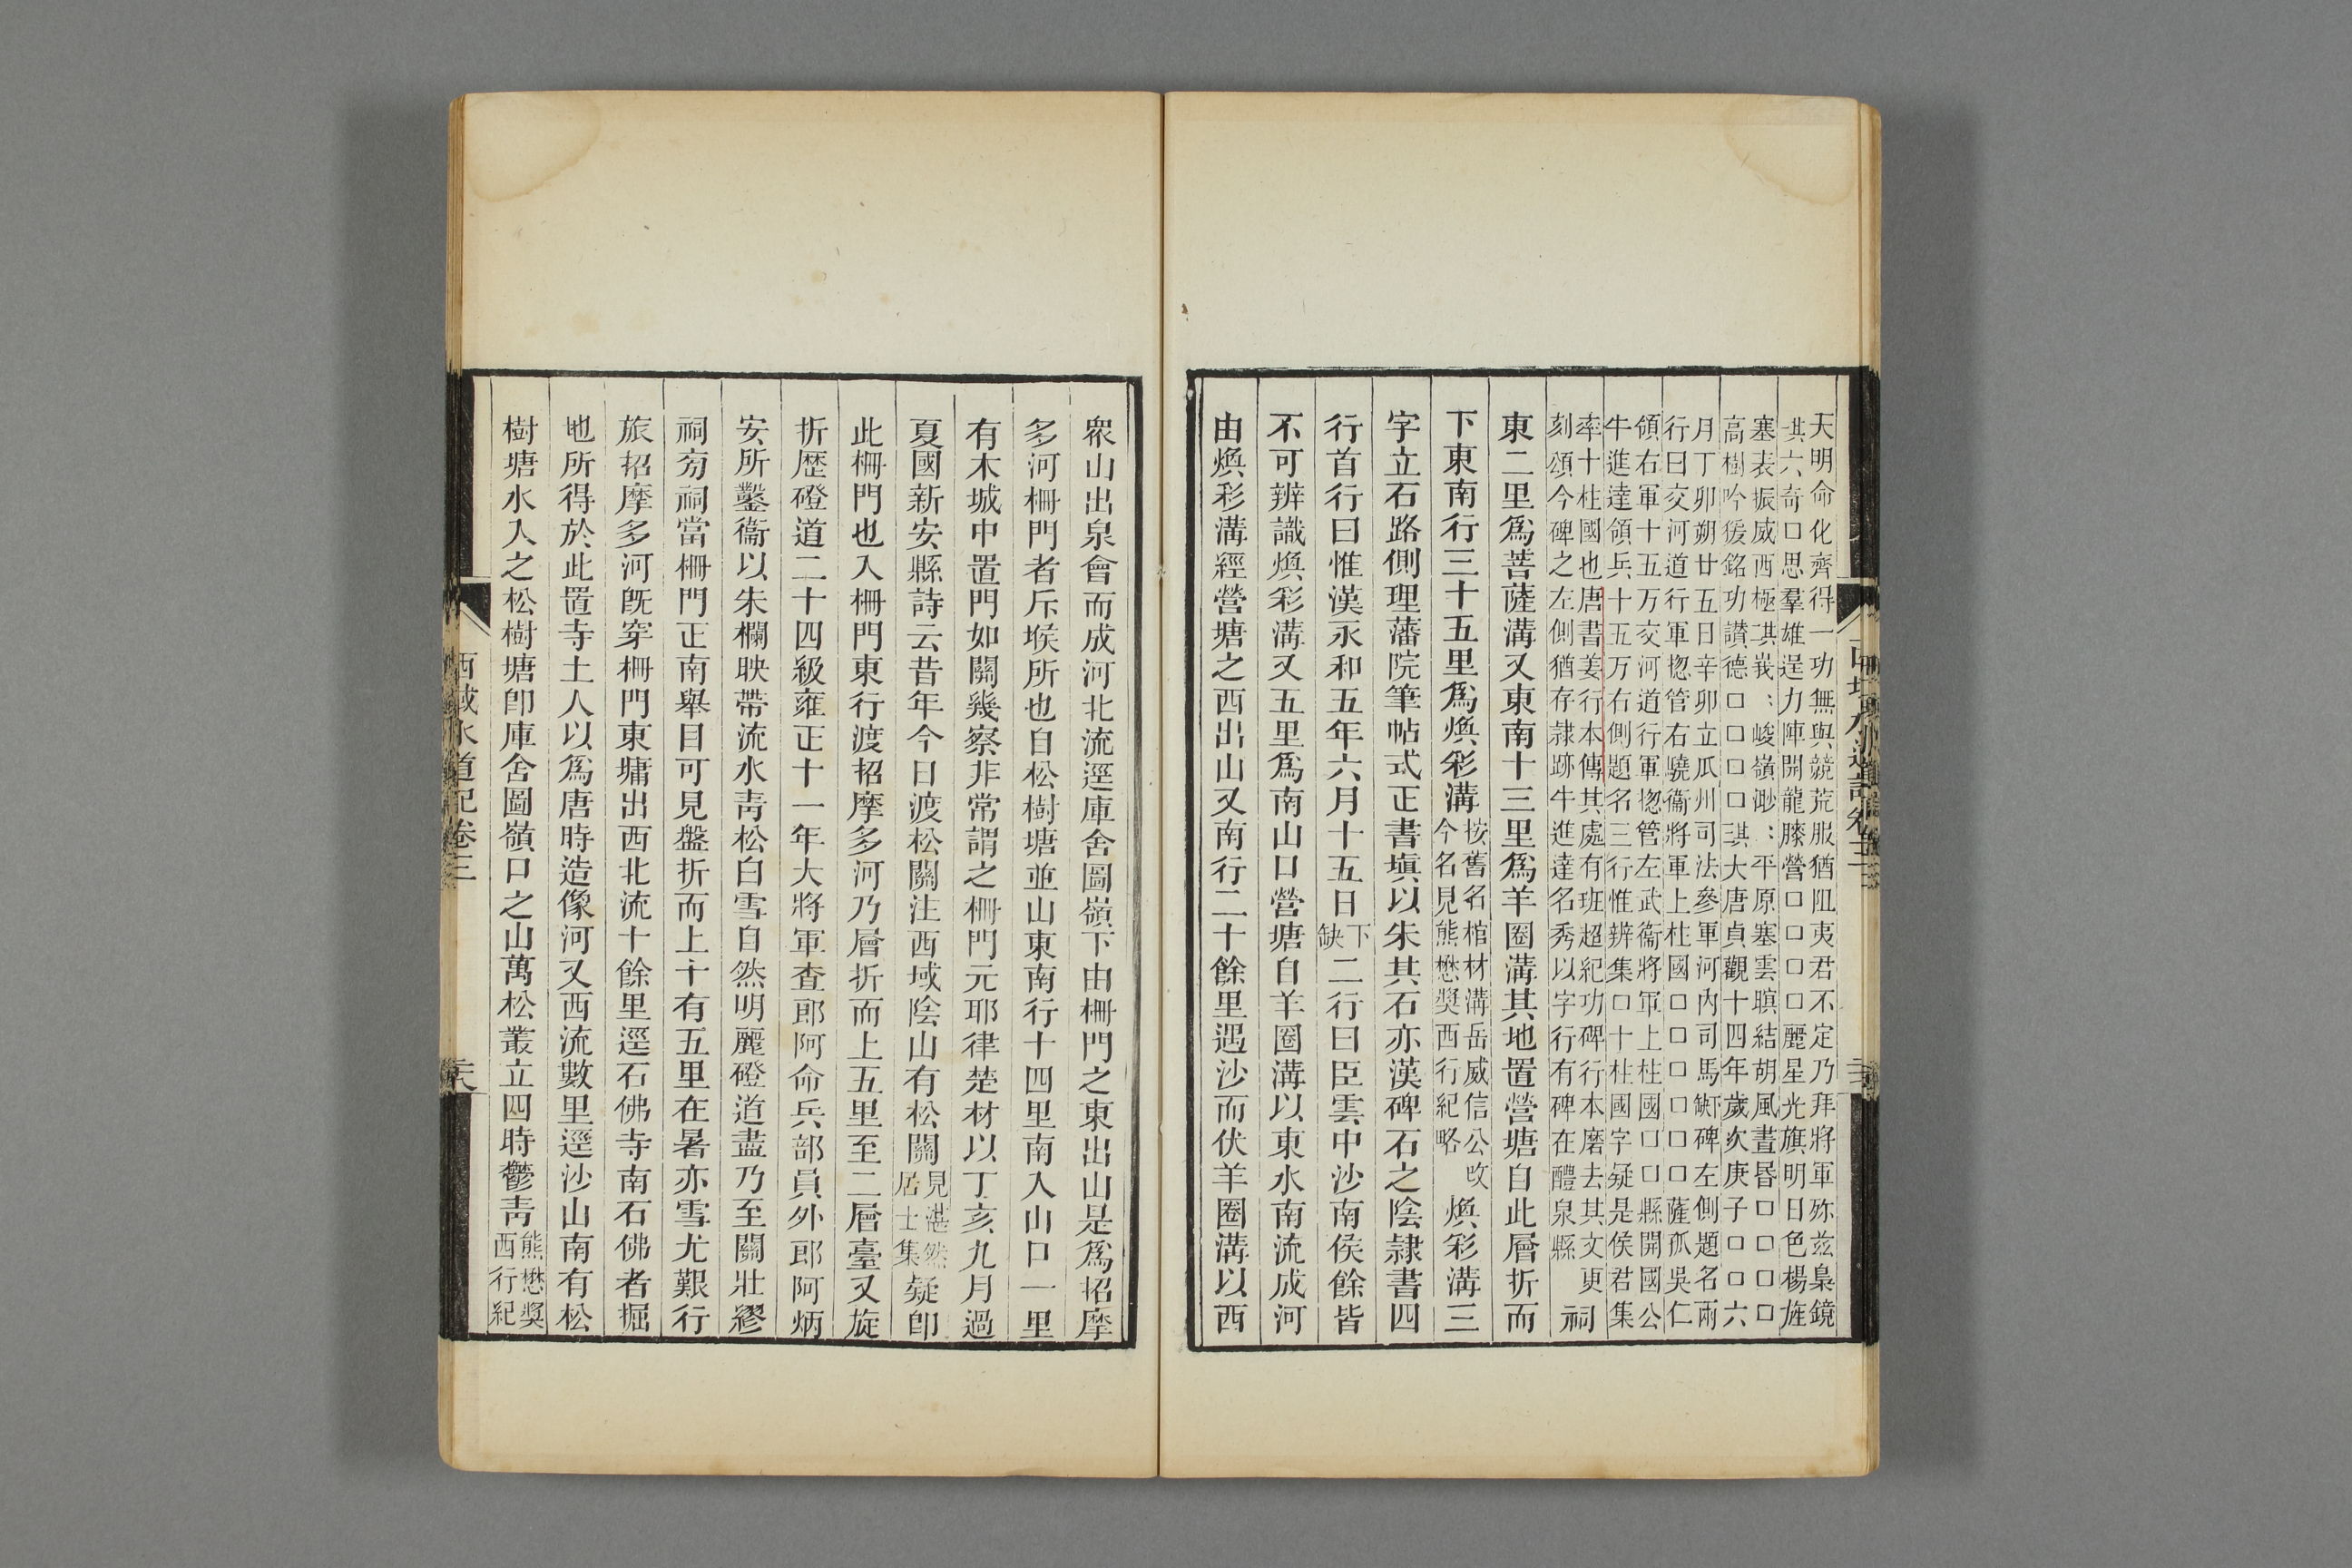 天明命化齊得一功無與競荒服猶阻夷君不定乃拜將軍弥茲梟鏡
其六奇口思羣雄逞力陣開龍膝營口口口麗星光旗明日色楊旌
塞表振威西極其峩〻峻嶺渺〻平原塞雲瞋結胡風晝昏口口口口
高樹吟猨銘功讃德口口口口其大唐貞觀十四年歲次庚子口口六
月丁卯朔廿五日辛卯立瓜州司法參軍河內司馬缺碑左側題名兩
行曰交河道行軍揔管右驍衞將軍上柱國口口口口口口薩孤吳仁
領右軍十五万交河道行軍揔管左武衞將軍上柱國口口縣開國公
牛進達領兵十五万右側題名三行惟辨集口十柱國字疑是侯君集
率十柱國也唐書姜行本傳其處有班超紀功碑行本磨去其文更
刻頌今碑之左側猶存隷跡牛進達名秀以字行有碑在醴泉縣
祠
東二里爲菩薩溝又東南十三里爲羊圈溝其地置營塘自此層折而
下東南行三十五里爲煥彩溝
按舊名棺材溝岳威信公改
今名見熊懋獎西行紀略
煥彩溝三
字立石路側理藩院筆帖式正書塡以朱其石亦漢碑石之陰隷書四
行首行曰惟漢永和五年六月十五日
下
缺
二行曰臣雲中沙南侯餘皆
不可辨識煥彩溝又五里爲南山口營塘自羊圈溝以東水南流成河
由煥彩溝經營塘之西出山又南行二十餘里遇沙而伏羊圈溝以西
衆山出泉會而成河北流逕庫舍圖嶺下由柵門之東出山是爲招摩
多河柵門者斥堠所也自松樹塘並山東南行十四里南入山口一里
有木城中置門如關幾察非常謂之柵門元耶律楚材以丁亥九月過
夏國新安縣詩云昔年今日渡松關注西域陰山有松關
見湛然
居士集
疑卽
此柵門也入柵門東行渡招摩多河乃層折而上五里至二層臺又旋
折歷磴道二十四級雍正十一年大將軍查郎阿命兵部員外郎阿炳
安所鑿衞以朱欄映帶流水靑松白雪自然明麗磴道盡乃至關壯繆
祠旁祠當柵門正南舉目可見盤折而上十有五里在暑亦雪尤艱行
旅招摩多河旣穿柵門東墉出西北流十餘里逕石佛寺南石佛者掘
地所得於此置寺土人以爲唐時造像河又西流數里逕沙山南有松
樹塘水入之松樹塘卽庫舍圖嶺口之山萬松叢立四時鬱靑
熊懋獎
西行紀
西域水道記卷三